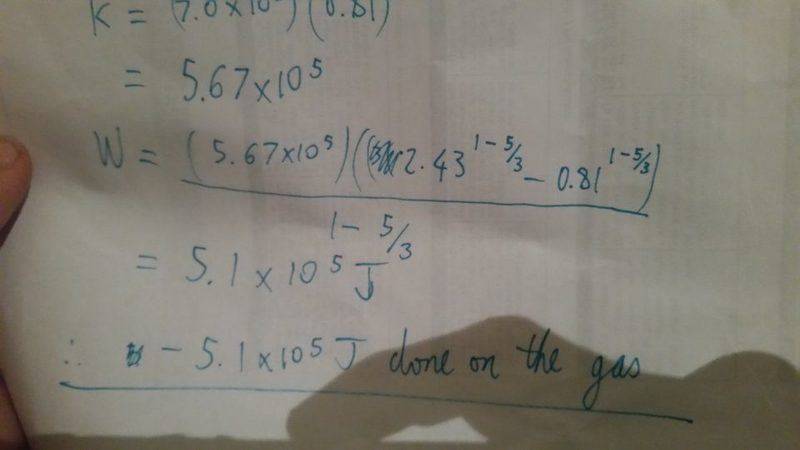 K = (7.0×10 ) (0.81)
= 5.67×10⁵
W = (5.67×10⁵)(2.43^1-5/3 - 0.81^1-5/3)
1 - 5/3
= 5.1 × 10⁵ J
∴ - 5.1×10⁵ J done on the gas